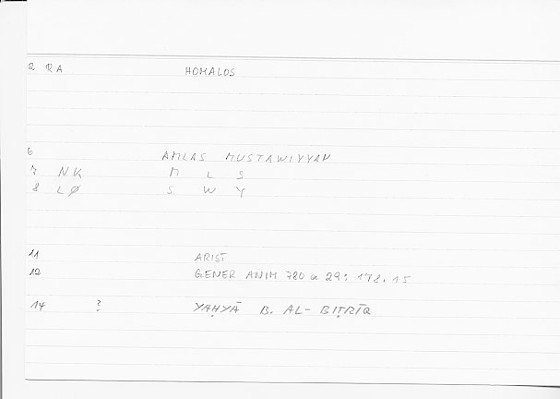 2 RA HOMALOS
6 AMLAS MUSTAWIYYAN
7 NK M L S
8 LØ S W Y
11 ARIST
12 GENER ANIM 780 a 29: 178.15
14 ? YAḤYĀ B. AL-BIṬRĪQ